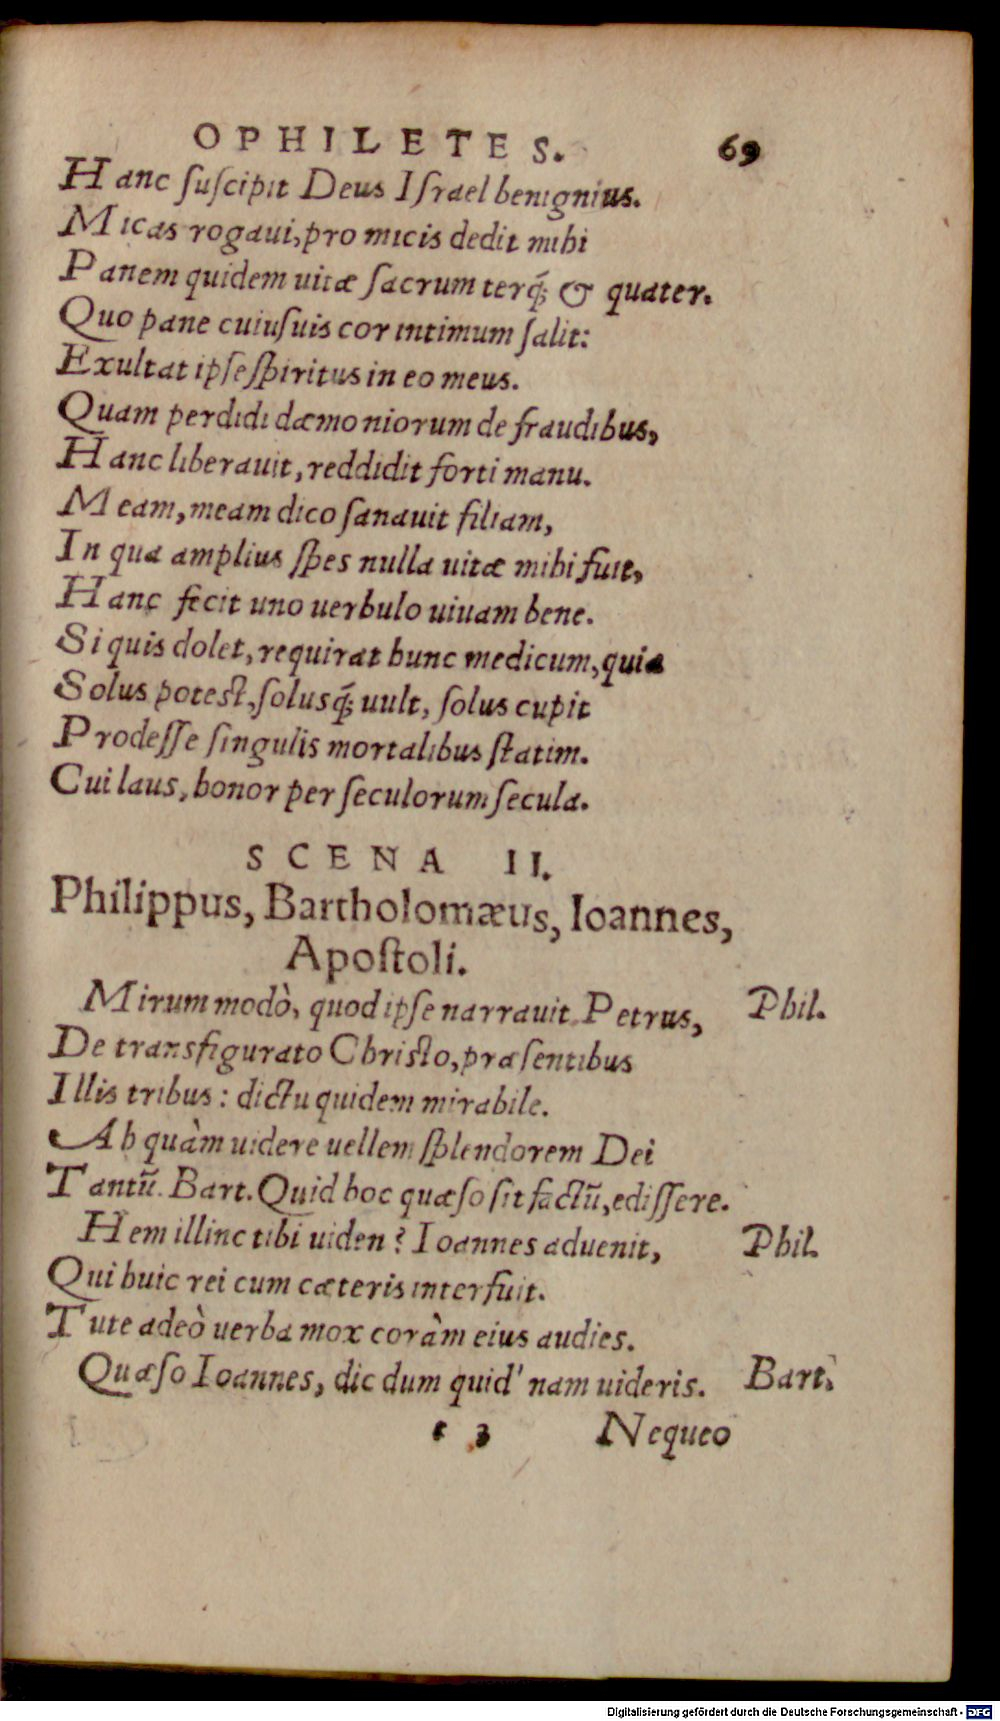 OPHILETES. 69
Hanc suscipit Deus Israel benignius.
Micas rogaui, pro micis dedit mihi
Panem quidem uitæ sacrum terq́; & quater.
Quo pane cuiusuis cor intimum salit:
Exultat ipse spiritus in eo meus.
Quam perdidi dæmoniorum de fraudibus,
Hanc liberauit, reddidit forti manu.
Meam, meam dico sanauit filiam,
In qua amplius spes nulla uitæ mihi fuit,
Hanc fecit uno uerbulo uiuam bene.
Si quis dolet, requirat hunc medicum, quia
Solus potest, solusq́; uult, solus cupit
Prodesse singulis mortalibus statim.
Cui laus, honor per seculorum secula.
SCENA II.
Philippus, Bartholomæus, Ioannes,
Apostoli.
Mirum modò, quod ipse narrauit Petrus, Phil.
De transfigurato Christo, præsentibus
Illis tribus: dictu quidem mirabile.
Ah quàm uidere uellem splendorem Dei
Tantũ. Bart. Quid hoc quæso sit factũ, edissere.
Hem illinc tibi uiden? Ioannes aduenit, Phil.
Qui huic rei cum cæteris interfuit.
Tute adeò uerba mox coràm eius audies.
Quæso Ioannes, dic dum quid'nam uideris. Bart.
e 3 Nequeo
Digitalisierung gefördert durch die Deutsche Forschungsgemeinschaft - DFG